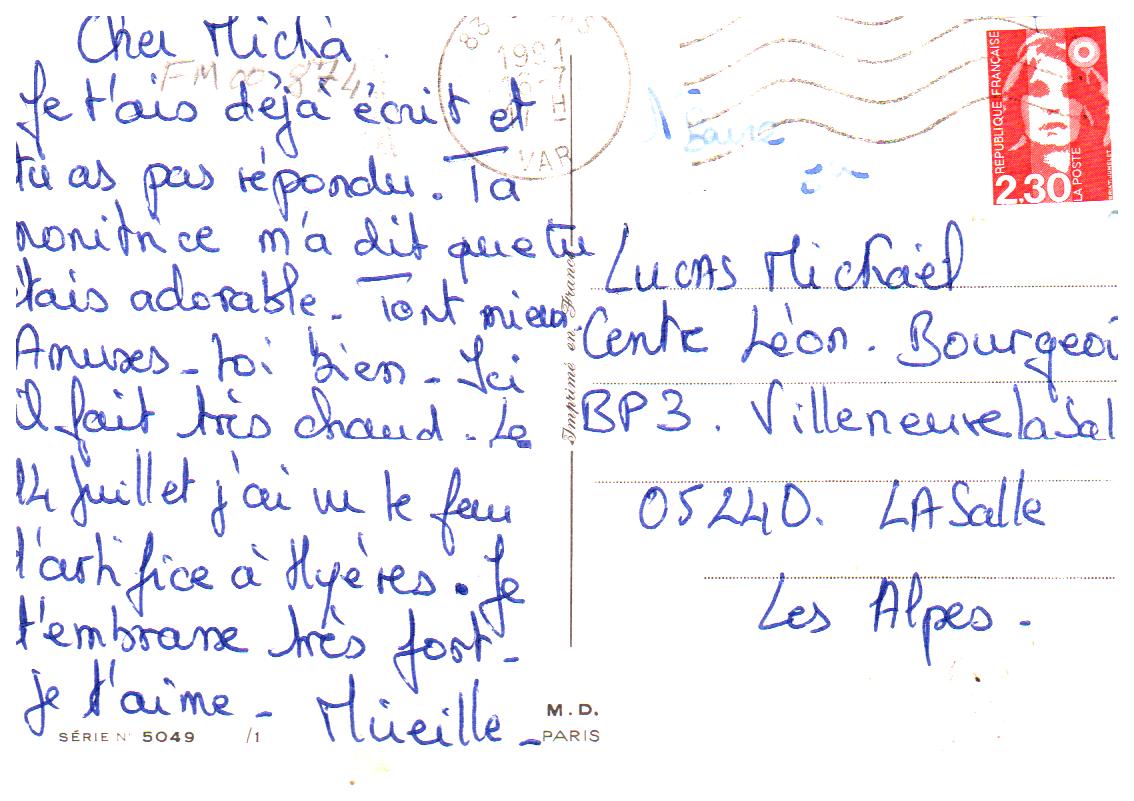 Cher Micha.
FM 00 874
Je t'ais déjà écrit et
tu as pas répondu. Ta
monitrice m'a dit que tu
tais adorable. Tant mieux.
Amuses-toi bien - Ici
il fait très chaud. Le
14 Juillet j'ai vu le feu
t'artifice à Hyères. Je
t'embrasse très fort -
je t'aime - Mireille -
SÉRIE N° 5049 /1
M. D.
PARIS
Imprimé en France
1991
VAR
RÉPUBLIQUE FRANÇAISE
LA POSTE
2.30
Lucas Michaël
Centre Léon. Bourgeoi
BP3. Villeneuve la Sal
05240. LA Salle
Les Alpes -